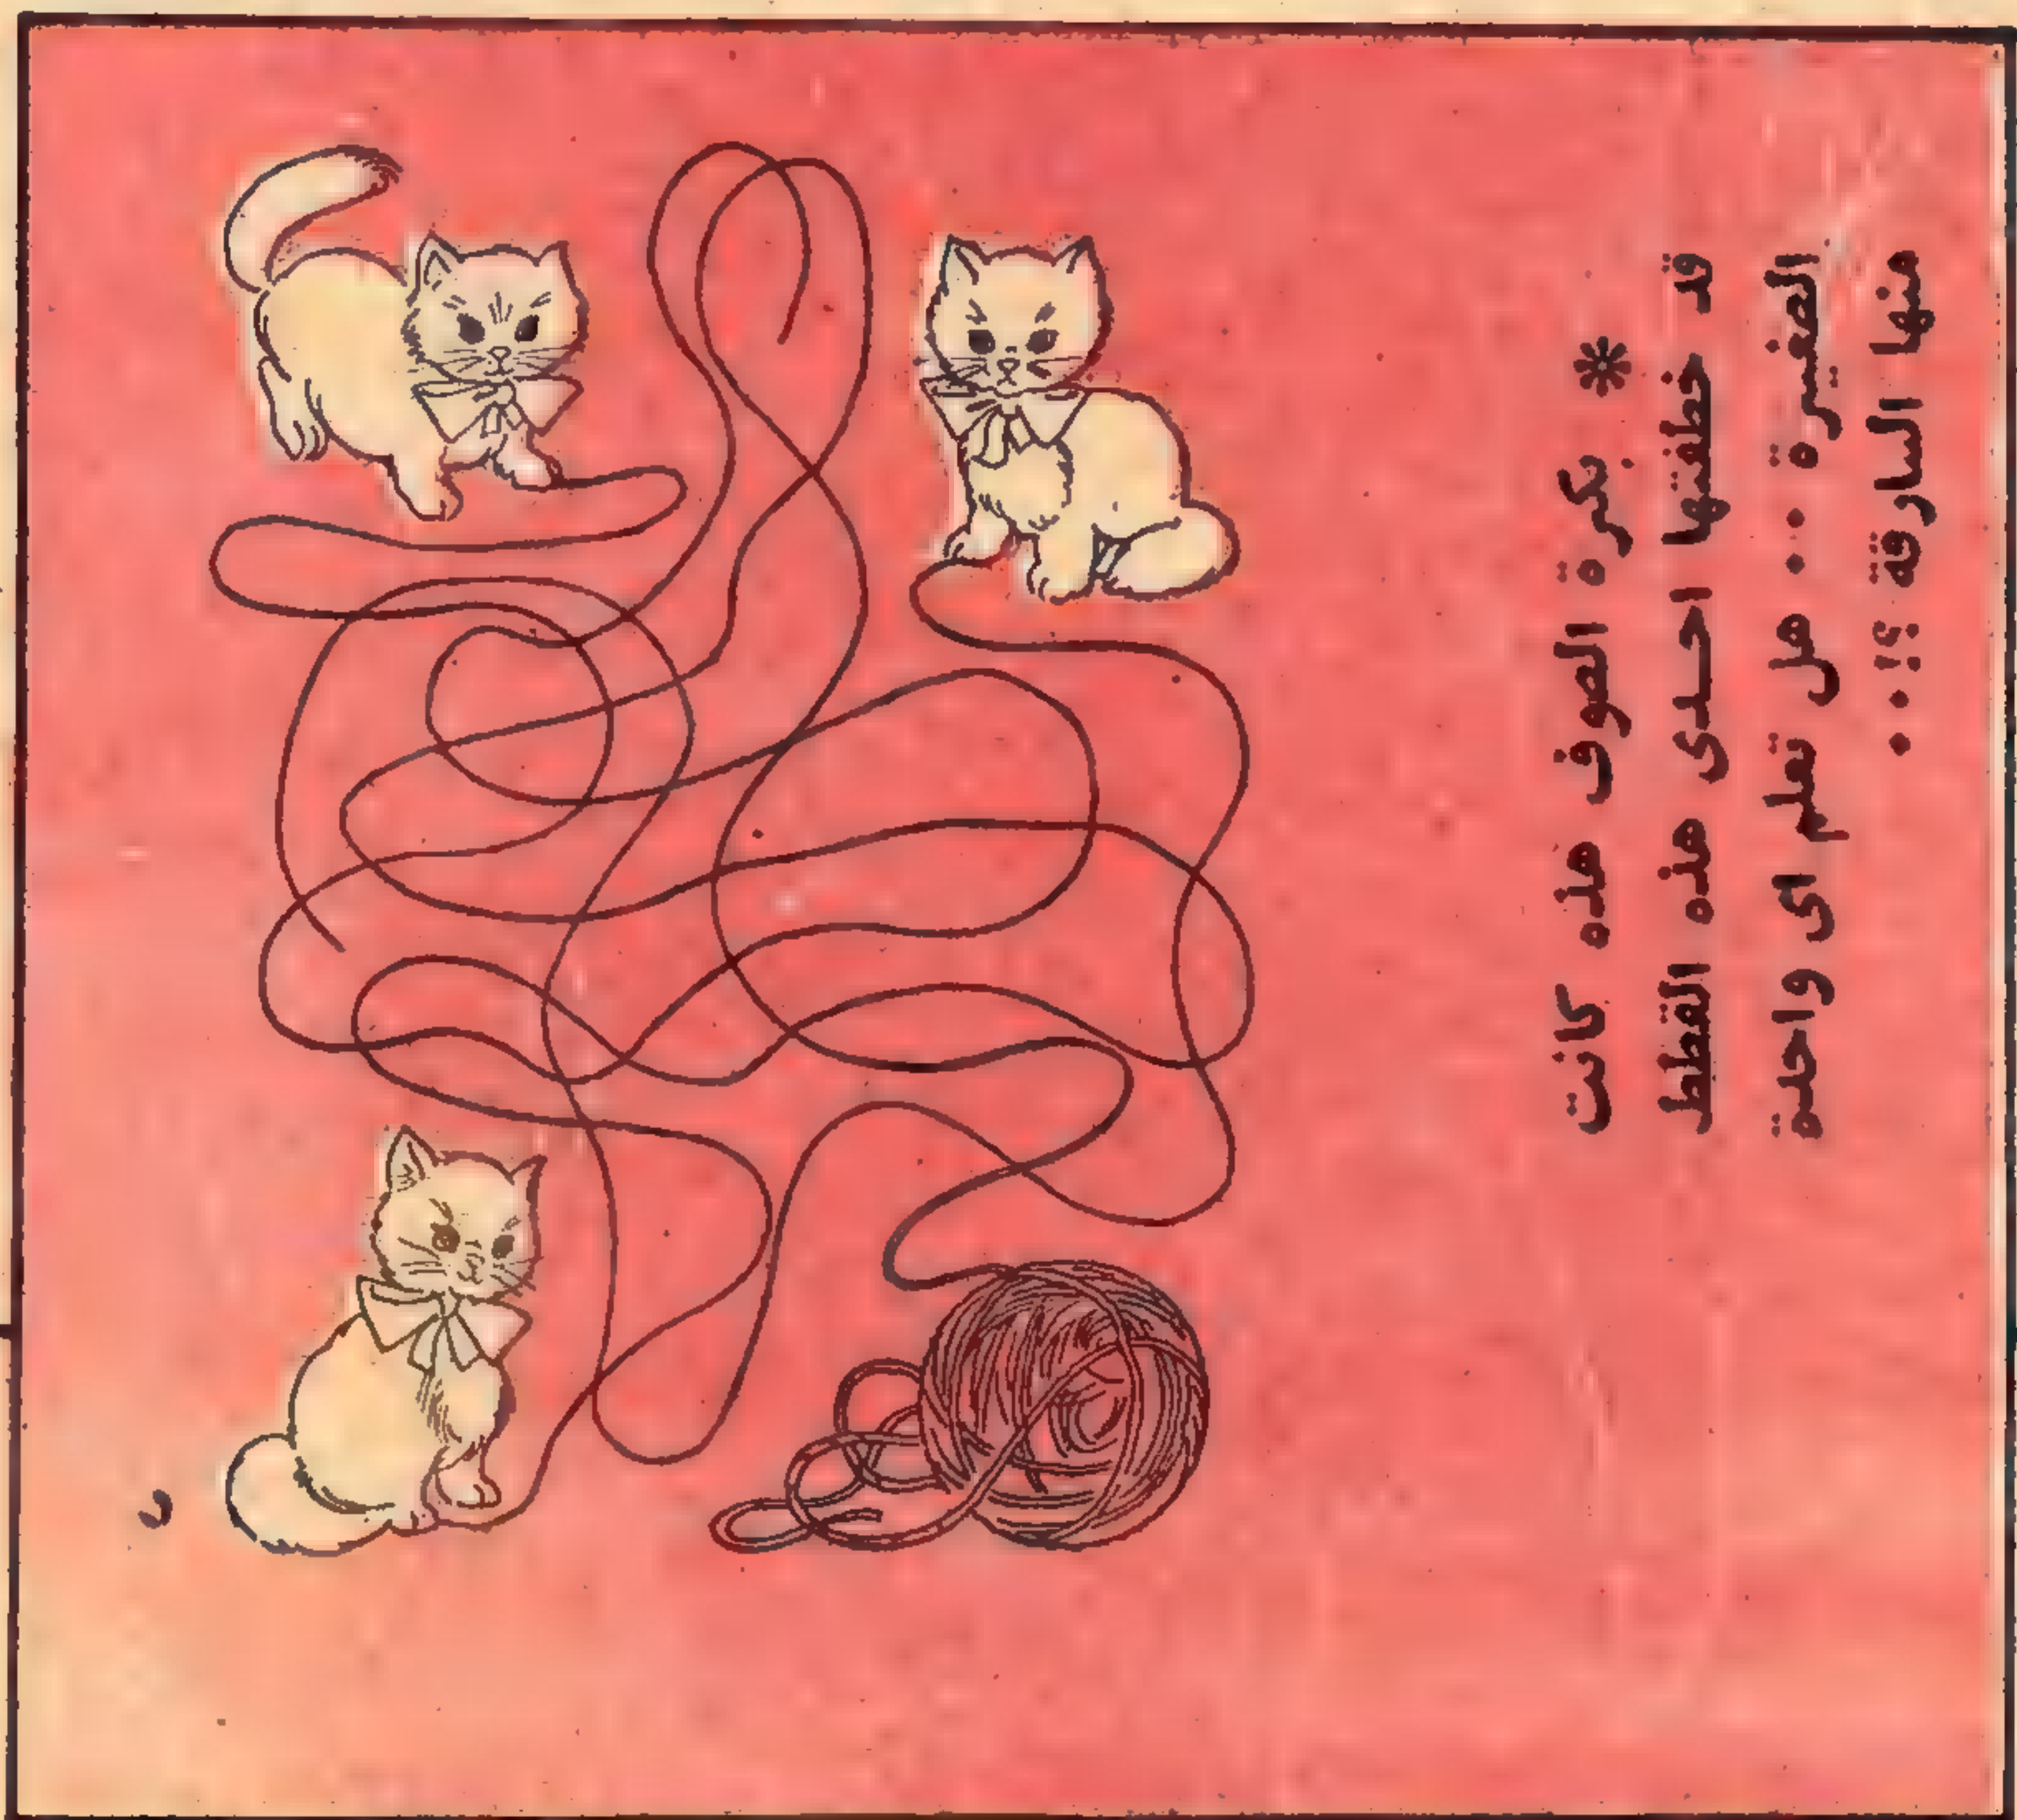 * بكرة الصوف هذه كانت
قد خطفتها احدى هذه القطط
الصغيرة .. هل تعلم اى واحدة
منها السارقة ؟! ..